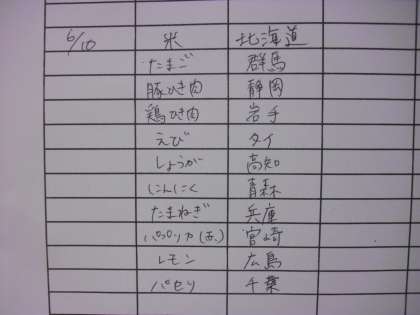 6/10 米 北海道
たまご 群馬
豚ひき肉 静岡
鶏ひき肉 岩手
えび タイ
しょうが 高知
にんにく 青森
たまねぎ 兵庫
パプリカ(赤) 宮崎
レモン 広島
パセリ 千葉